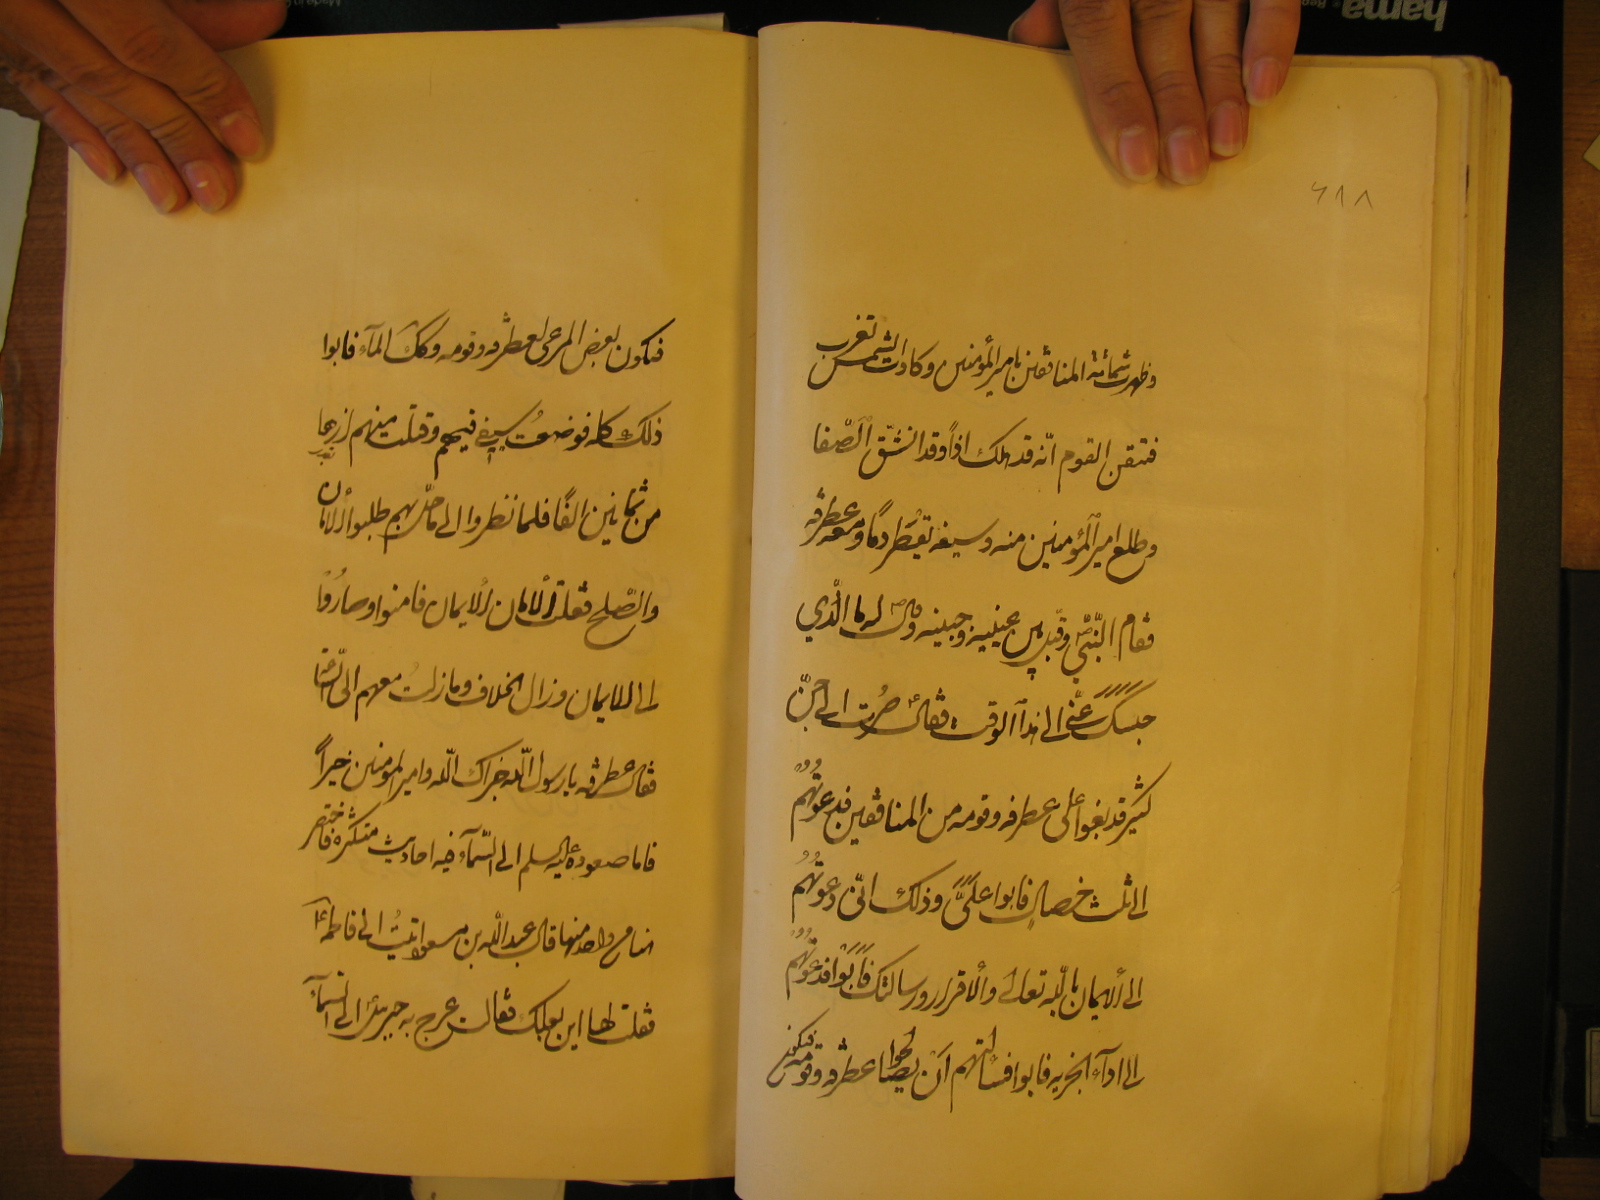 ۶۱۸
وظهرت شماتة المنافقين بامير المؤمنين وكادت الشمس تغرب
فتيقن القوم انّه قد هلك اذاً وقد انشقّ الصّفا
وطلع امير المؤمنين منه وسيفه تقطر دمًا ومعه عطرفه
فقام النّبيّ وقبل بين عينيه وجبينه وقال له ما الّذي
حبسك عنّي الى هذا الوقت فقال صرت الى جنّ
كثير قد بغوا على عطرفه وقومه من المنافقين فدعوتهم
الى ثلث خصال فابوا علىّ وذلك انّى دعوتهم
الى الايمان بالله تعالى والاقرار ورسالتك فابوا فدعوتهم
الى اداء الجزيه فابوا فسئالتهم ان يصالحوا عطرفه وقومه فتكون
فتكون بعض المرعى لعطرفه وقومه وكك الماء فابوا
ذلك كله فوضعت سيفى فيهم وقتلت منهم
من ثمانين الفًا فلما نظروا الى ما حلّ بهم طلبوا الامان
والصّلح فقلت لا امان الا بالايمان فامنوا وصاروا
وزال الخلاف وما زلت معهم الى
فقال عطرفه يا رسول الله جزاك الله وامير المؤمنين خيراً
فاما صعوده عليه السلم الى السّماء ففيه احاديث متكثره
منها قال عبد الله بن مسعود اتيت الى فاطمة ع
فقلت لها اين بعلك فقالت عرج به جبرئيل الى السّماء
hama